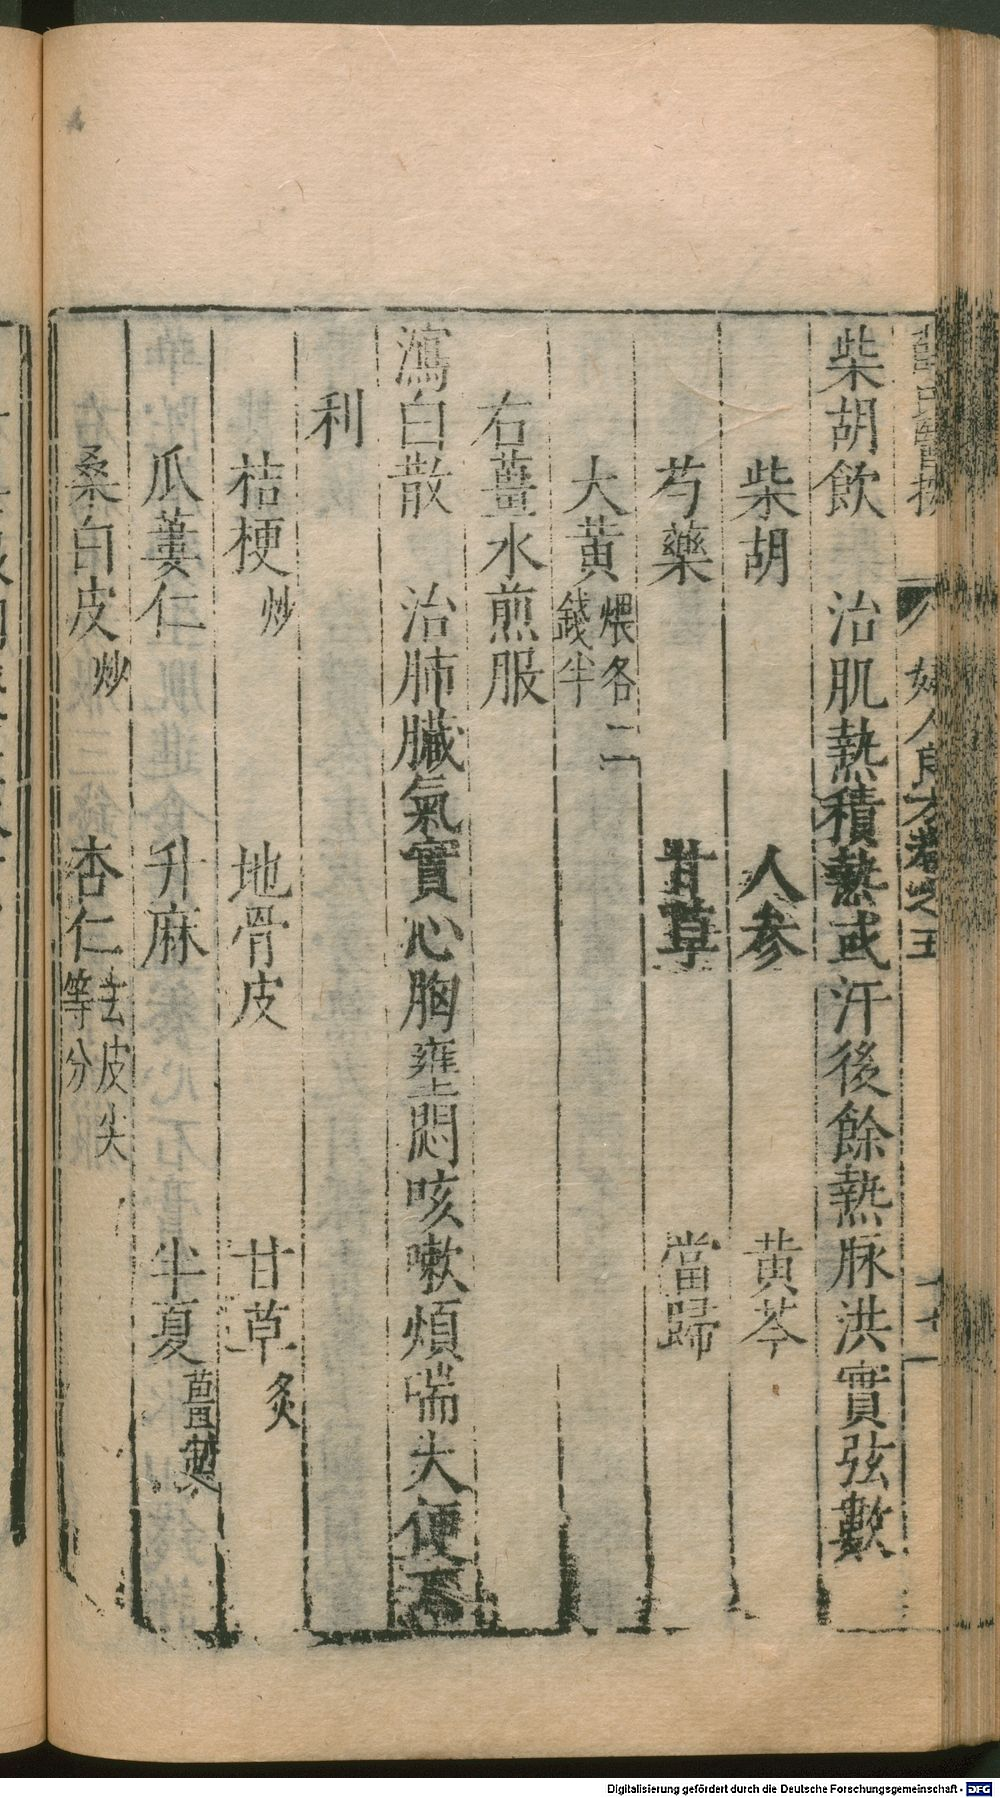 婦人良方卷之五
柴胡飲　治肌熱積熱或汗後餘熱脉洪實弦數
柴胡　人参　黃芩
芍藥　甘草　當歸
大黃煨各二錢半
右薑水煎服
瀉白散　治肺臟氣實心胸壅悶咳嗽煩喘大便不
利
桔梗炒　地骨皮　甘草炙
瓜蔞仁　升麻　半夏薑製
桑白皮炒　杏仁去皮尖等分
Digitalisierung gefördert durch die Deutsche Forschungsgemeinschaft - DFG